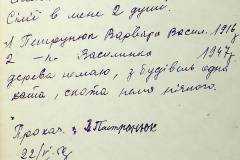 Сімї в мене 2 душі.
1 Петрунюк Варвара Васил. 1916
2 — " — Василина 1947 р
дерева немаю, з будівель одна
хата, скота нема нічого.
Прохач. з Петрунюк
22/VI-